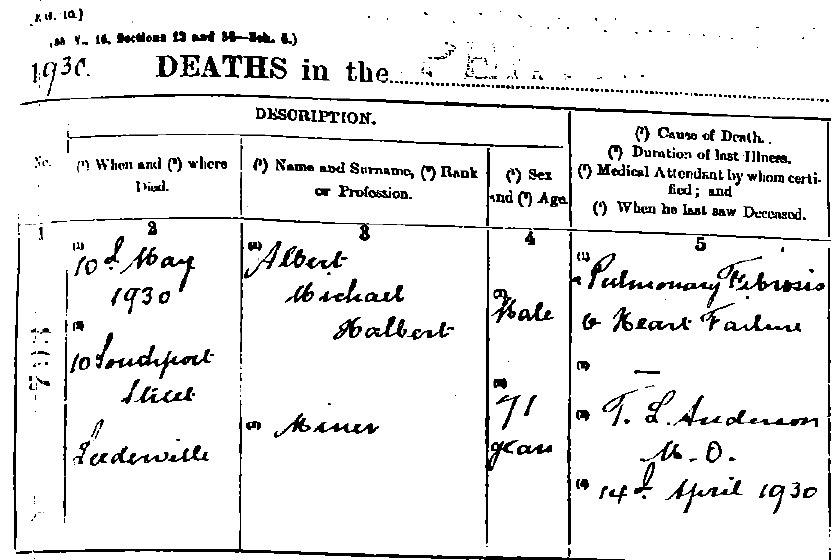 (55 V., 16, Sections 12 and 36—Sch. 5.)
1930. DEATHS in the
DESCRIPTION.
No.
(1) When and (2) where
Died.
(1) Name and Surname, (2) Rank
or Profession.
(1) Sex
and (2) Age
(1) Cause of Death.
(2) Duration of last Illness.
(3) Medical Attendant by whom certi-
fied; and
(4) When he last saw Deceased.
1 2 3 4 5
(1) 10th May
1930
(2) 10 Southport
Street
Leederville
(1) Albert
Michael
Halbert
(2) Miner
(1) Male
(2) 71
years
(1) a Pulmonary Fibrosis
b Heart Failure
(2) —
(3) T. L. Anderson
M.O.
(4) 14th April 1930